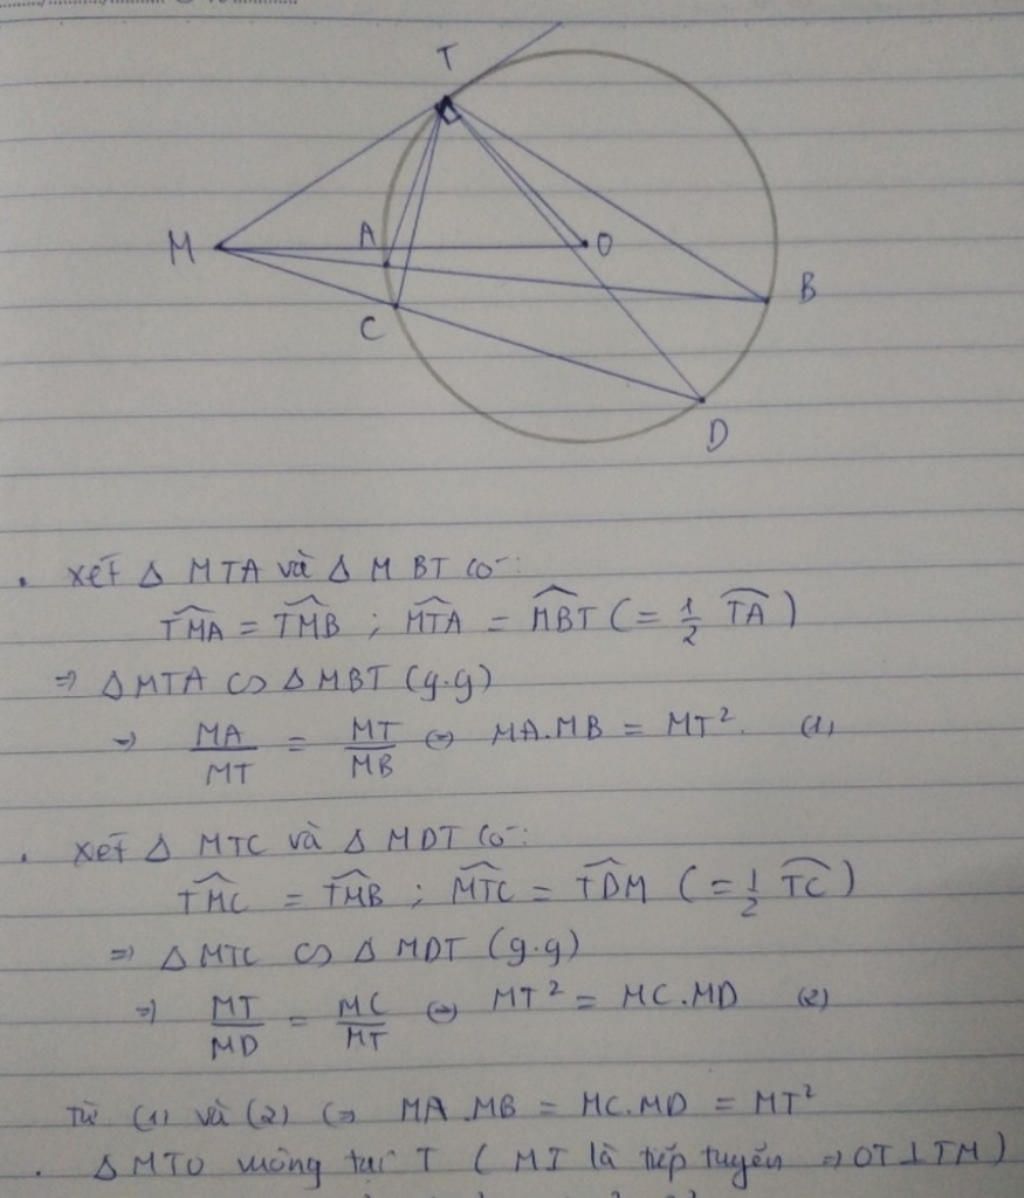 T
M
A
O
B
C
D
. xét Δ MTA và Δ MBT có:
∠TMA = ∠TMB ; ∠MTA = ∠MBT (= 1/2 TA)
=> ΔMTA ∽ ΔMBT (g.g)
=> MA/MT = MT/MB <=> MA.MB = MT². (1)
. xét Δ MTC và Δ MDT có:
∠TMC = ∠TMB ; ∠MTC = ∠TDM (= 1/2 TC)
=> Δ MTC ∽ Δ MDT (g.g)
=> MT/MD = MC/MT <=> MT² = MC.MD (2)
Từ (1) và (2) <=> MA.MB = MC.MD = MT²
. Δ MTO vuông tại T ( MT là tiếp tuyến => OT⊥TM )